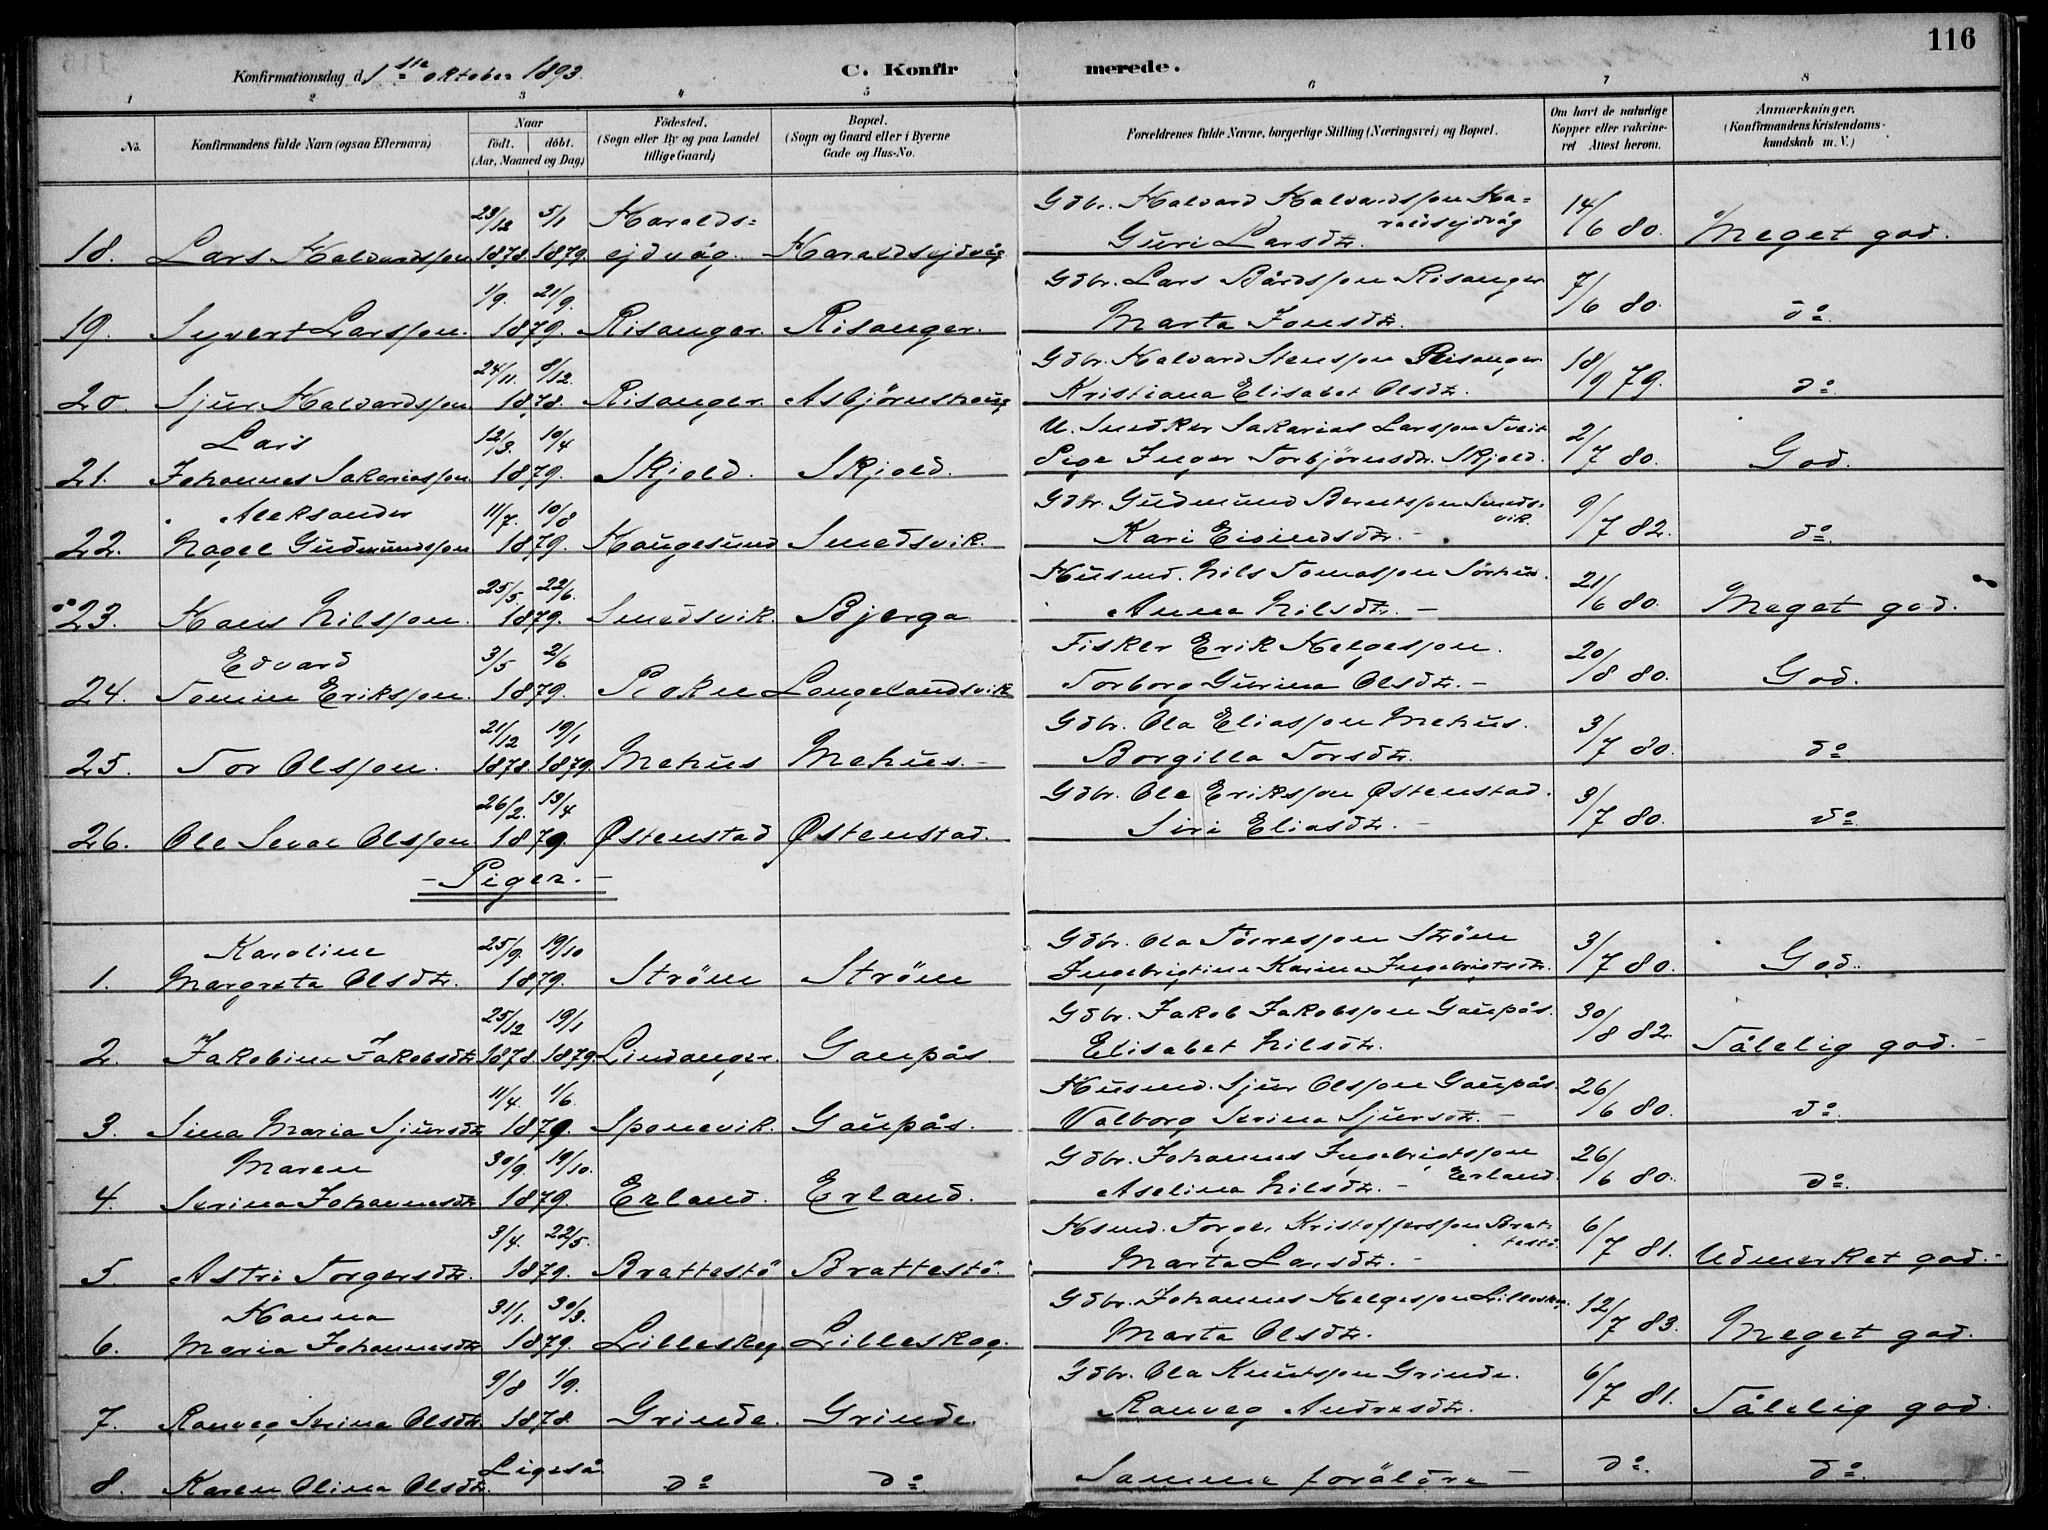 116
Konfirmationsdag d. 1ste Oktober 1893. C. Konfirmerede.
1 2 3 4 5 6 7 8
No. Konfirmandens fulde Navn (ogsaa Efternavn) Naar født. døbt. (Aar, Maaned og Dag) Fødested. (Sogn eller By og paa Landet tillige Gaard) Bopæl. (Sogn og Gaard eller i Byerne Gade og Hus-No. Forældrenes fulde Navne, borgerlige Stilling (Næringsvei) og Bopæl. Om havt de naturlige Kopper eller vakcineret Attest herom. Anmærkninger. (Konfirmandens Kristendomskundskab m. V.)
23/12 5/1 Haralds= Gdbr. Halvard Halvardsson Ha= 14/6 80.
18. Lars Halvardsson 1878. 1879. ejdvåg. Haraldsejdvåg Guri Larsdtr. raldsejdvåg Meget god.
1/9. 21/9. Gdbr. Lars Bårdsson Risanger 7/6 80.
19. Syvert Larsson. 1879. Risanger. Risanger. Marta Jonsdtr. do.
24/11. 8/12. Gdbr. Halvard Stensson Risanger 18/9 79.
20. Sjur Halvardsson 1878. Risanger. Asbjørnshaug Kristiana Elisabet Olsdtr. do.
Lars 12/3. 10/4 U. Snedker Sakarias Larsson Tveit 2/7 80.
21. Johannes Sakariasson 1879. Skjold. Skjold. Pige Inger Torbjørnsdtr. Skjold. God.
Aleksander 11/7. 10/8 Gdbr. Gudmund Berntsson Smeds= 9/7 82.
22. Nagel Gudmundsson 1879. Haugesund Smedsvik. Kari Eivindsdtr. vik. do.
25/5. 22/6. Husmd. Nils Tomasson Sørhus. 21/6 80.
23. Hans Nilsson. 1879. Smedsvik. Bjerga Anna Nilsdtr. Meget god.
Edvard 3/5 2/6 Fisker Erik Helgesson. 20/8 80.
24. Tomin Eriksson. 1879. Røkn Langelandsvik Torborg Gurina Olsdtr. God.
21/12 19/1 Gdbr. Ola Eliasson Mehus. 3/7 80.
25. Tor Olsson. 1878. 1879. Mehus Mehus. Borgilla Torsdtr. do
26/2. 13/4 Gdbr. Ole Eriksson Østenstad. 3/7 80.
26. Ole Seval Olsson 1879. Østenstad Østenstad. Siri Eliasdtr. do
Piger.
Karoline 25/9. 19/10 Gdbr. Ola Tørresson Strøm 3/7 80.
1. Margreta Olsdtr. 1879. Strøm Strøm Ingebrigtine Karine Ingebrigtsdtr. God.
25/12 19/1 Gdbr. Jakob Jakobsson Gaupås. 30/8 82.
2. Jakobine Jakobsdtr. 1878. 1879. Lindanger. Gaupås Elisabet Nilsdtr. Tålelig god.
11/4. 1/6. Husmd. Sjur Olsson Gaupås. 26/6 80.
3. Sina Maria Sjursdtr 1879. Sponevik. Gaupås. Valborg Serina Sjursdtr. do
Maren 30/9. 19/10. Gdbr. Johannes Ingebrigtsson 26/6 80.
4. Serina Johannesdtr 1879. Erland. Erland. Aselina Nilsdtr. Erland. do
3/4. 22/5. Hsmd. Torger Kristoffersson Brat= 6/7 81.
5. Astri Torgersdtr. 1879. Brattestø Brattestø. Marta Larsdtr. testø. Udmerket god.
Hanna 31/1. 30/3. Gdbr. Johannes Helgesson Lilleskog. 12/7 83.
6. Maria Johannesdtr 1879. Lilleskog. Lilleskog. Marta Olsdtr. Meget god.
9/8 1/9. Gdbr. Ola Knutsson Grinde. 6/7 81.
7. Ranveg Serina Olsdtr 1878. Grinde. Grinde. Ranveg Andrasdtr. Tålelig god.
8. Karen Olina Olsdtr. Ligeså do do. Samme forældre do. do.